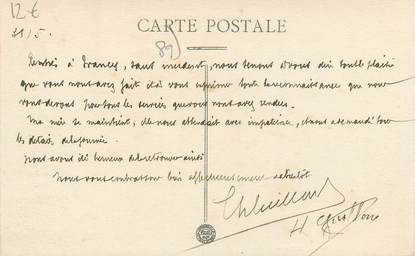 12 €
21/5.
CARTE POSTALE
89
Rentrés à Trancy, sans incident, nous tenons à vous dire tout le plaisir
que vous nous avez fait et à vous exprimer toute la reconnaissance que nous
vous devons pour tous les services que vous nous avez rendus.
Ma mère se maintient; elle nous attendait avec impatience, et nous a demandé tous
les détails de la journée.
Nous avons été heureux de la retrouver ainsi
Nous vous embrassons bien affectueusement